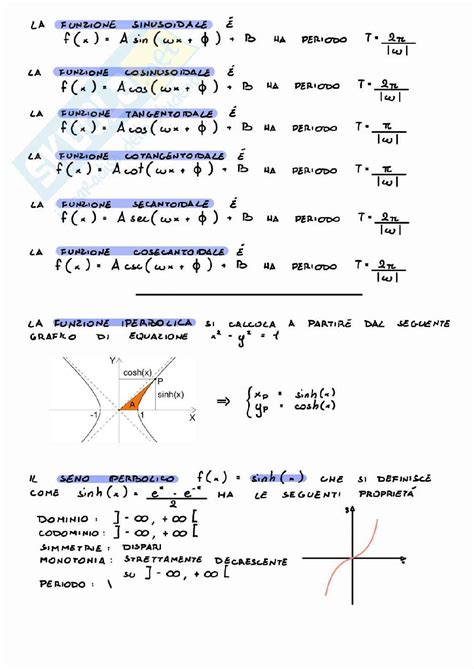 LA FUNZIONE SINUSOIDALE È
f(x) = A sin(ωx + ϕ) + B HA PERIODO T = 2π/|ω|
LA FUNZIONE COSINUSOIDALE È
f(x) = A cos(ωx + ϕ) + B HA PERIODO T = 2π/|ω|
LA FUNZIONE TANGENTOIDALE È
f(x) = A cos(ωx + ϕ) + B HA PERIODO T = π/|ω|
LA FUNZIONE COTANGENTOIDALE È
f(x) = A cot(ωx + ϕ) + B HA PERIODO T = π/|ω|
LA FUNZIONE SECANTOIDALE È
f(x) = A sec(ωx + ϕ) + B HA PERIODO T = 2π/|ω|
LA FUNZIONE COSECANTOIDALE È
f(x) = A csc(ωx + ϕ) + B HA PERIODO T = 2π/|ω|
LA FUNZIONE IPERBOLICA SI CALCOLA A PARTIRE DAL SEGUENTE
GRAFICO DI EQUAZIONE x² - y² = 1
Y
cosh(x)
P
sinh(x)
A
-1 1 X
⇒ { xp = sinh(x)
yp = cosh(x)
IL SENO IPERBOLICO f(x) = sinh(x) CHE SI DEFINISCE
COME sinh(x) = eˣ - e⁻ˣ/2 HA LE SEGUENTI PROPRIETÁ
DOMINIO: ]-∞, +∞[
CODOMINIO: ]-∞, +∞[
SIMMETRIE: DISPARI
MONOTONIA: STRETTAMENTE DECRESCENTE
SU ]-∞, +∞[
PERIODO: \